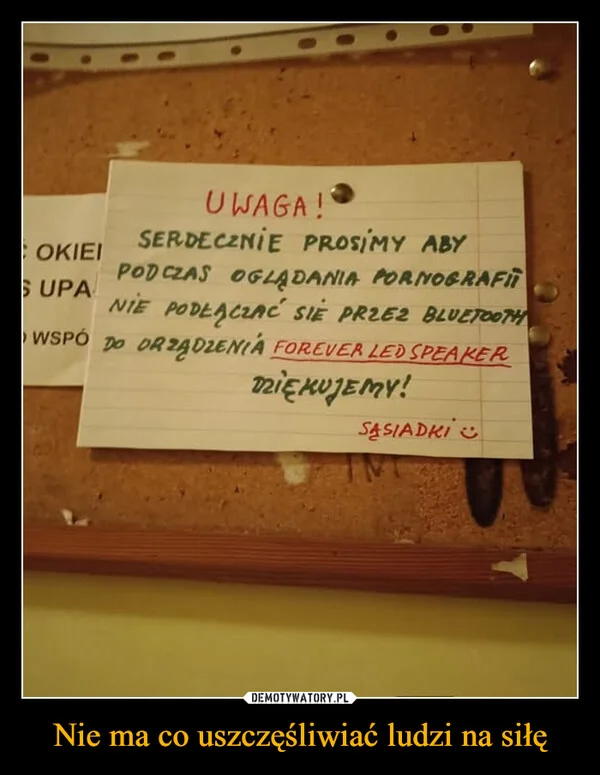 UWAGA!
SERDECZNIE PROSIMY ABY
PODCZAS OGLĄDANIA PORNOGRAFII
NIE PODŁĄCZAĆ SIĘ PRZEZ BLUETOOTH
DO ORZĄDZENIA FOREVER LED SPEAKER
DZIĘKUJEMY!
SĄSIADKI :)
OKIEI
UPA
WSPÓ
DEMOTYWATORY.PL
Nie ma co uszczęśliwiać ludzi na siłę